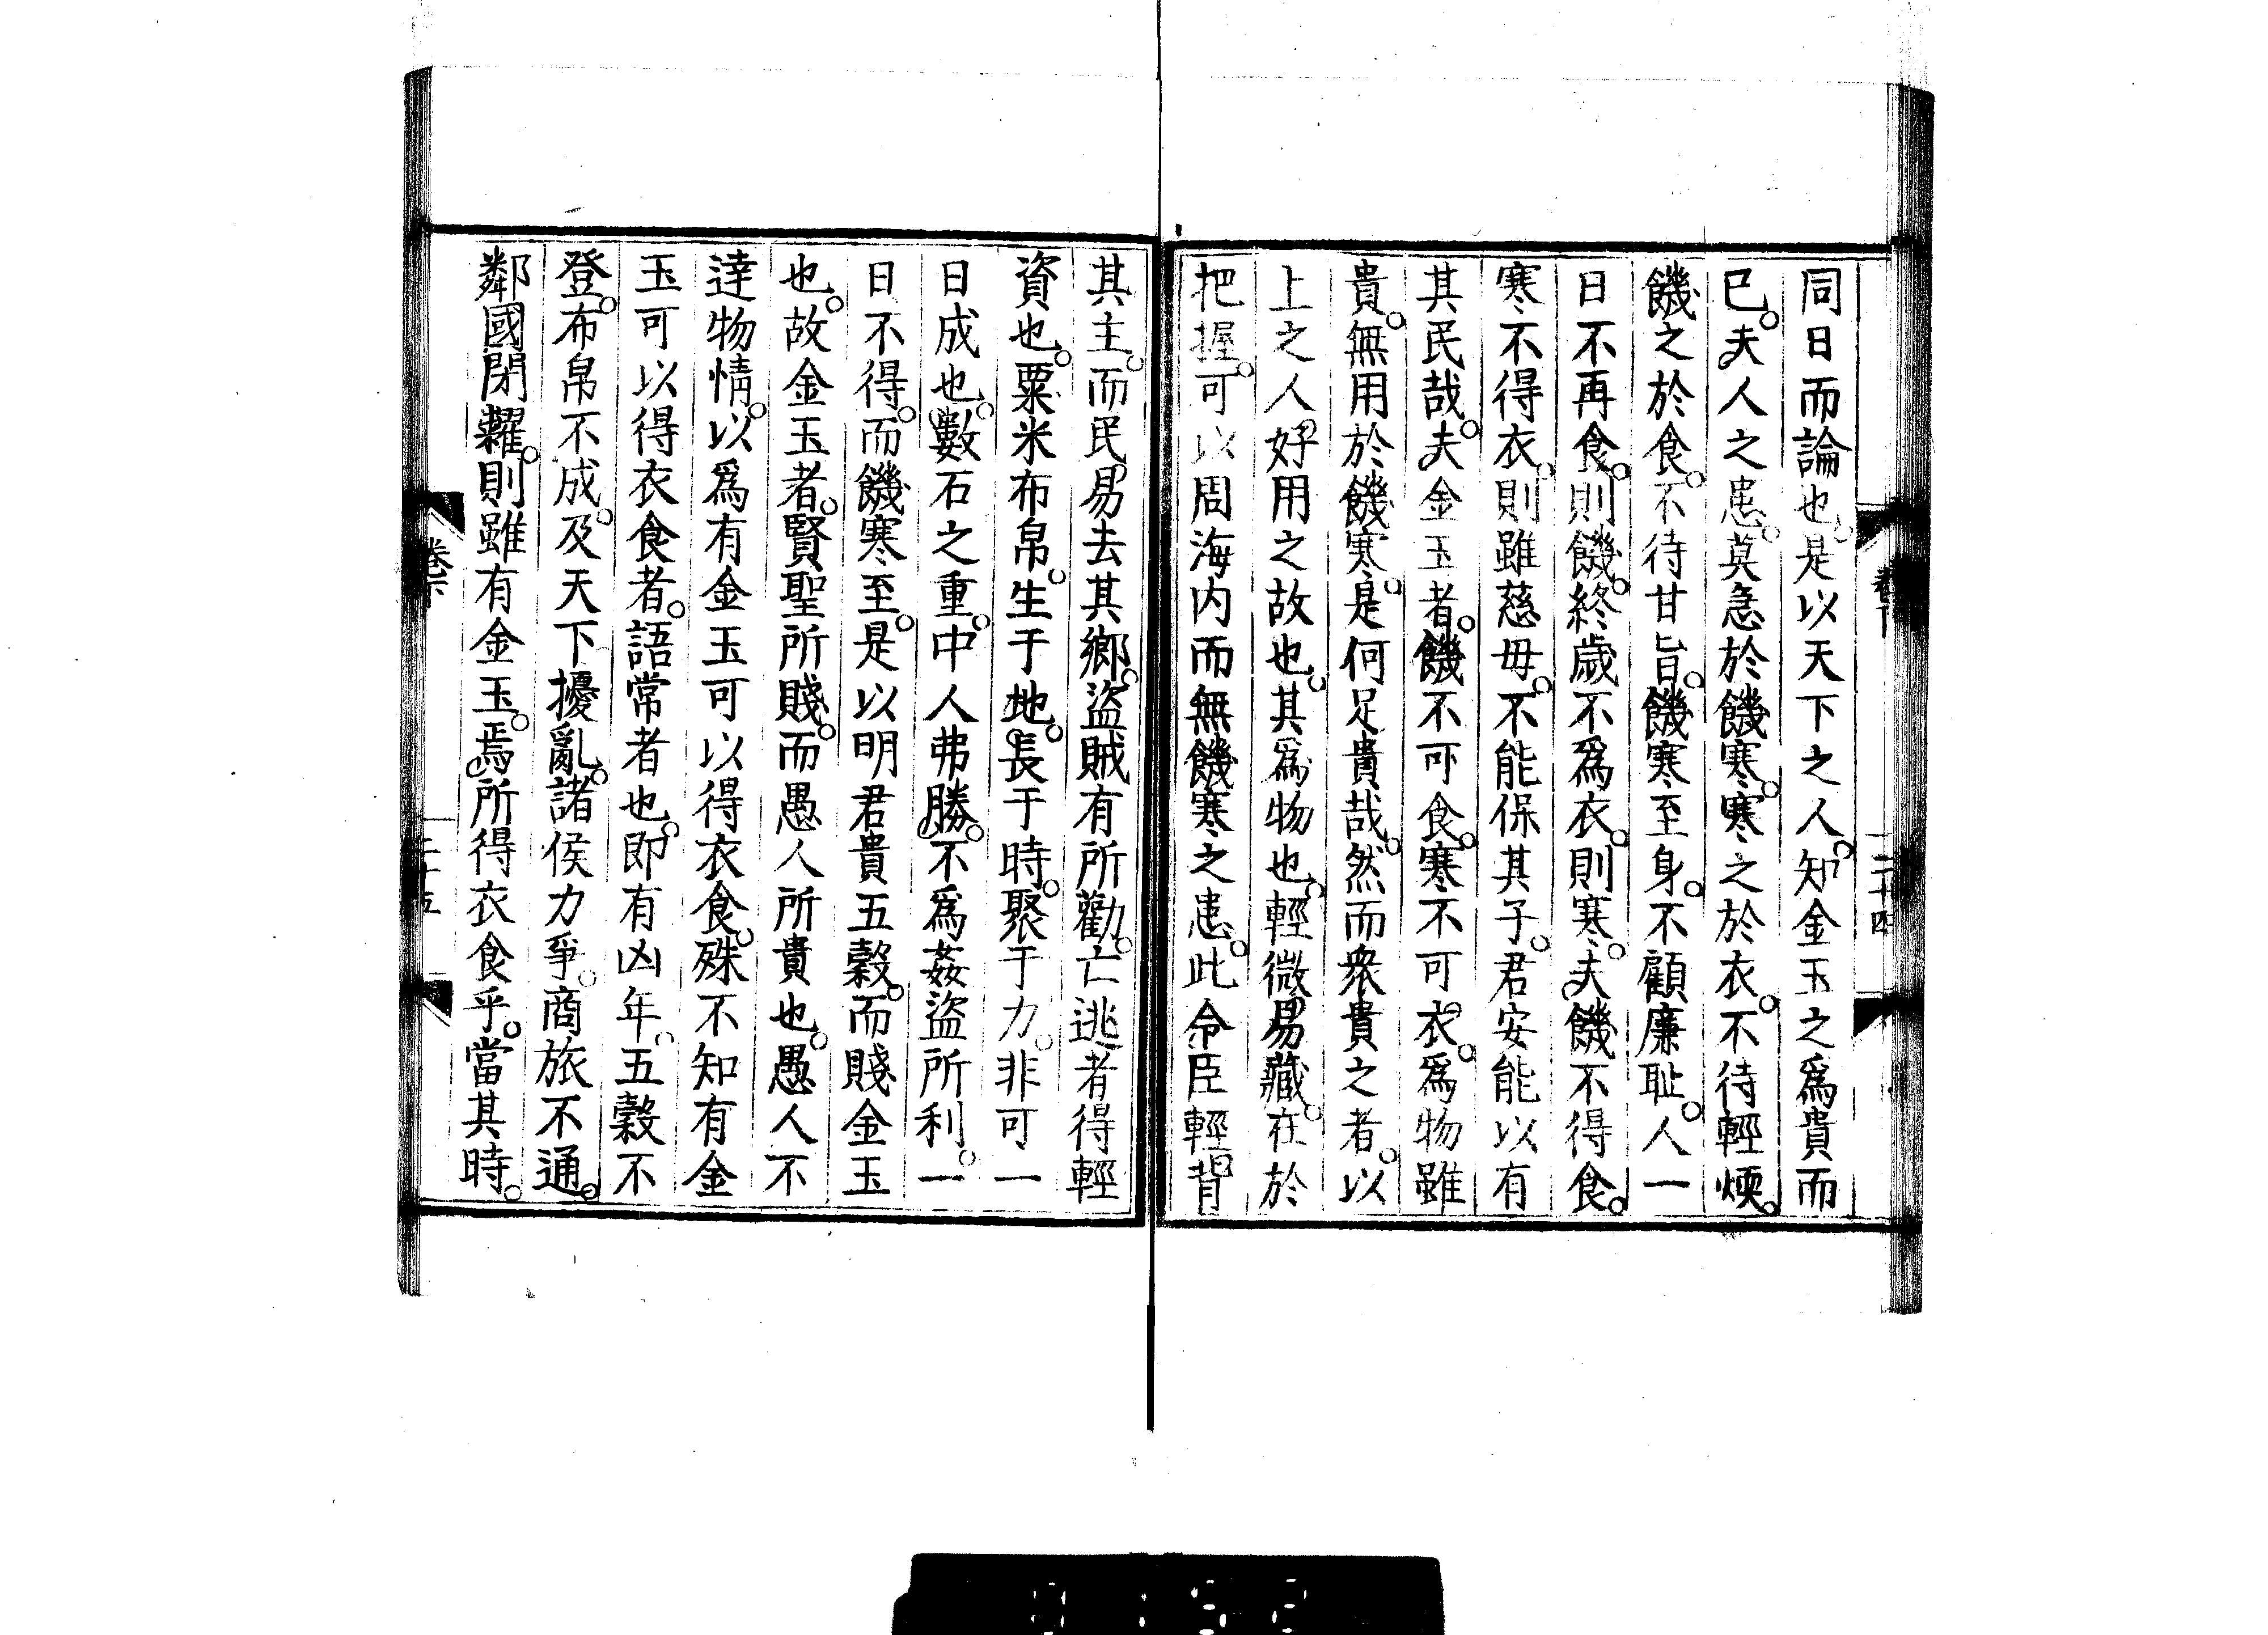 同日而論也。是以天下之人。知金玉之爲貴而
已。夫人之患。莫急於饑寒。寒之於衣。不待輕煖。
饑之於食。不待甘旨。饑寒至身。不顧廉耻。人一
日不再食。則饑。終歲不爲衣。則寒。夫饑不得食。
寒不得衣。則雖慈母。不能保其子。君安能以有
其民哉。夫金玉者。饑不可食。寒不可衣。爲物雖
貴。無用於饑寒。是何足貴哉。然而衆貴之者。以
上之人好用之故也。其爲物也。輕微易藏。在於
把握。可以周海内而無饑寒之患。此令臣輕背
二十四
其主。而民易去其鄉。盜賊有所勸。亡逃者得輕
資也。粟米布帛。生于地。長于時。聚于力。非可一
日成也。數石之重。中人弗勝。不爲姦盜所利。一
日不得。而饑寒至。是以明君貴五穀。而賤金玉
也。故金玉者。賢聖所賤。而愚人所貴也。愚人不
達物情。以爲有金玉可以得衣食。殊不知有金
玉可以得衣食者。語常者也。即有凶年。五穀不
登。布帛不成。及天下擾亂。諸侯力爭。商旅不通。
鄰國閉糶。則雖有金玉。焉所得衣食乎。當其時。
卷下
二十五